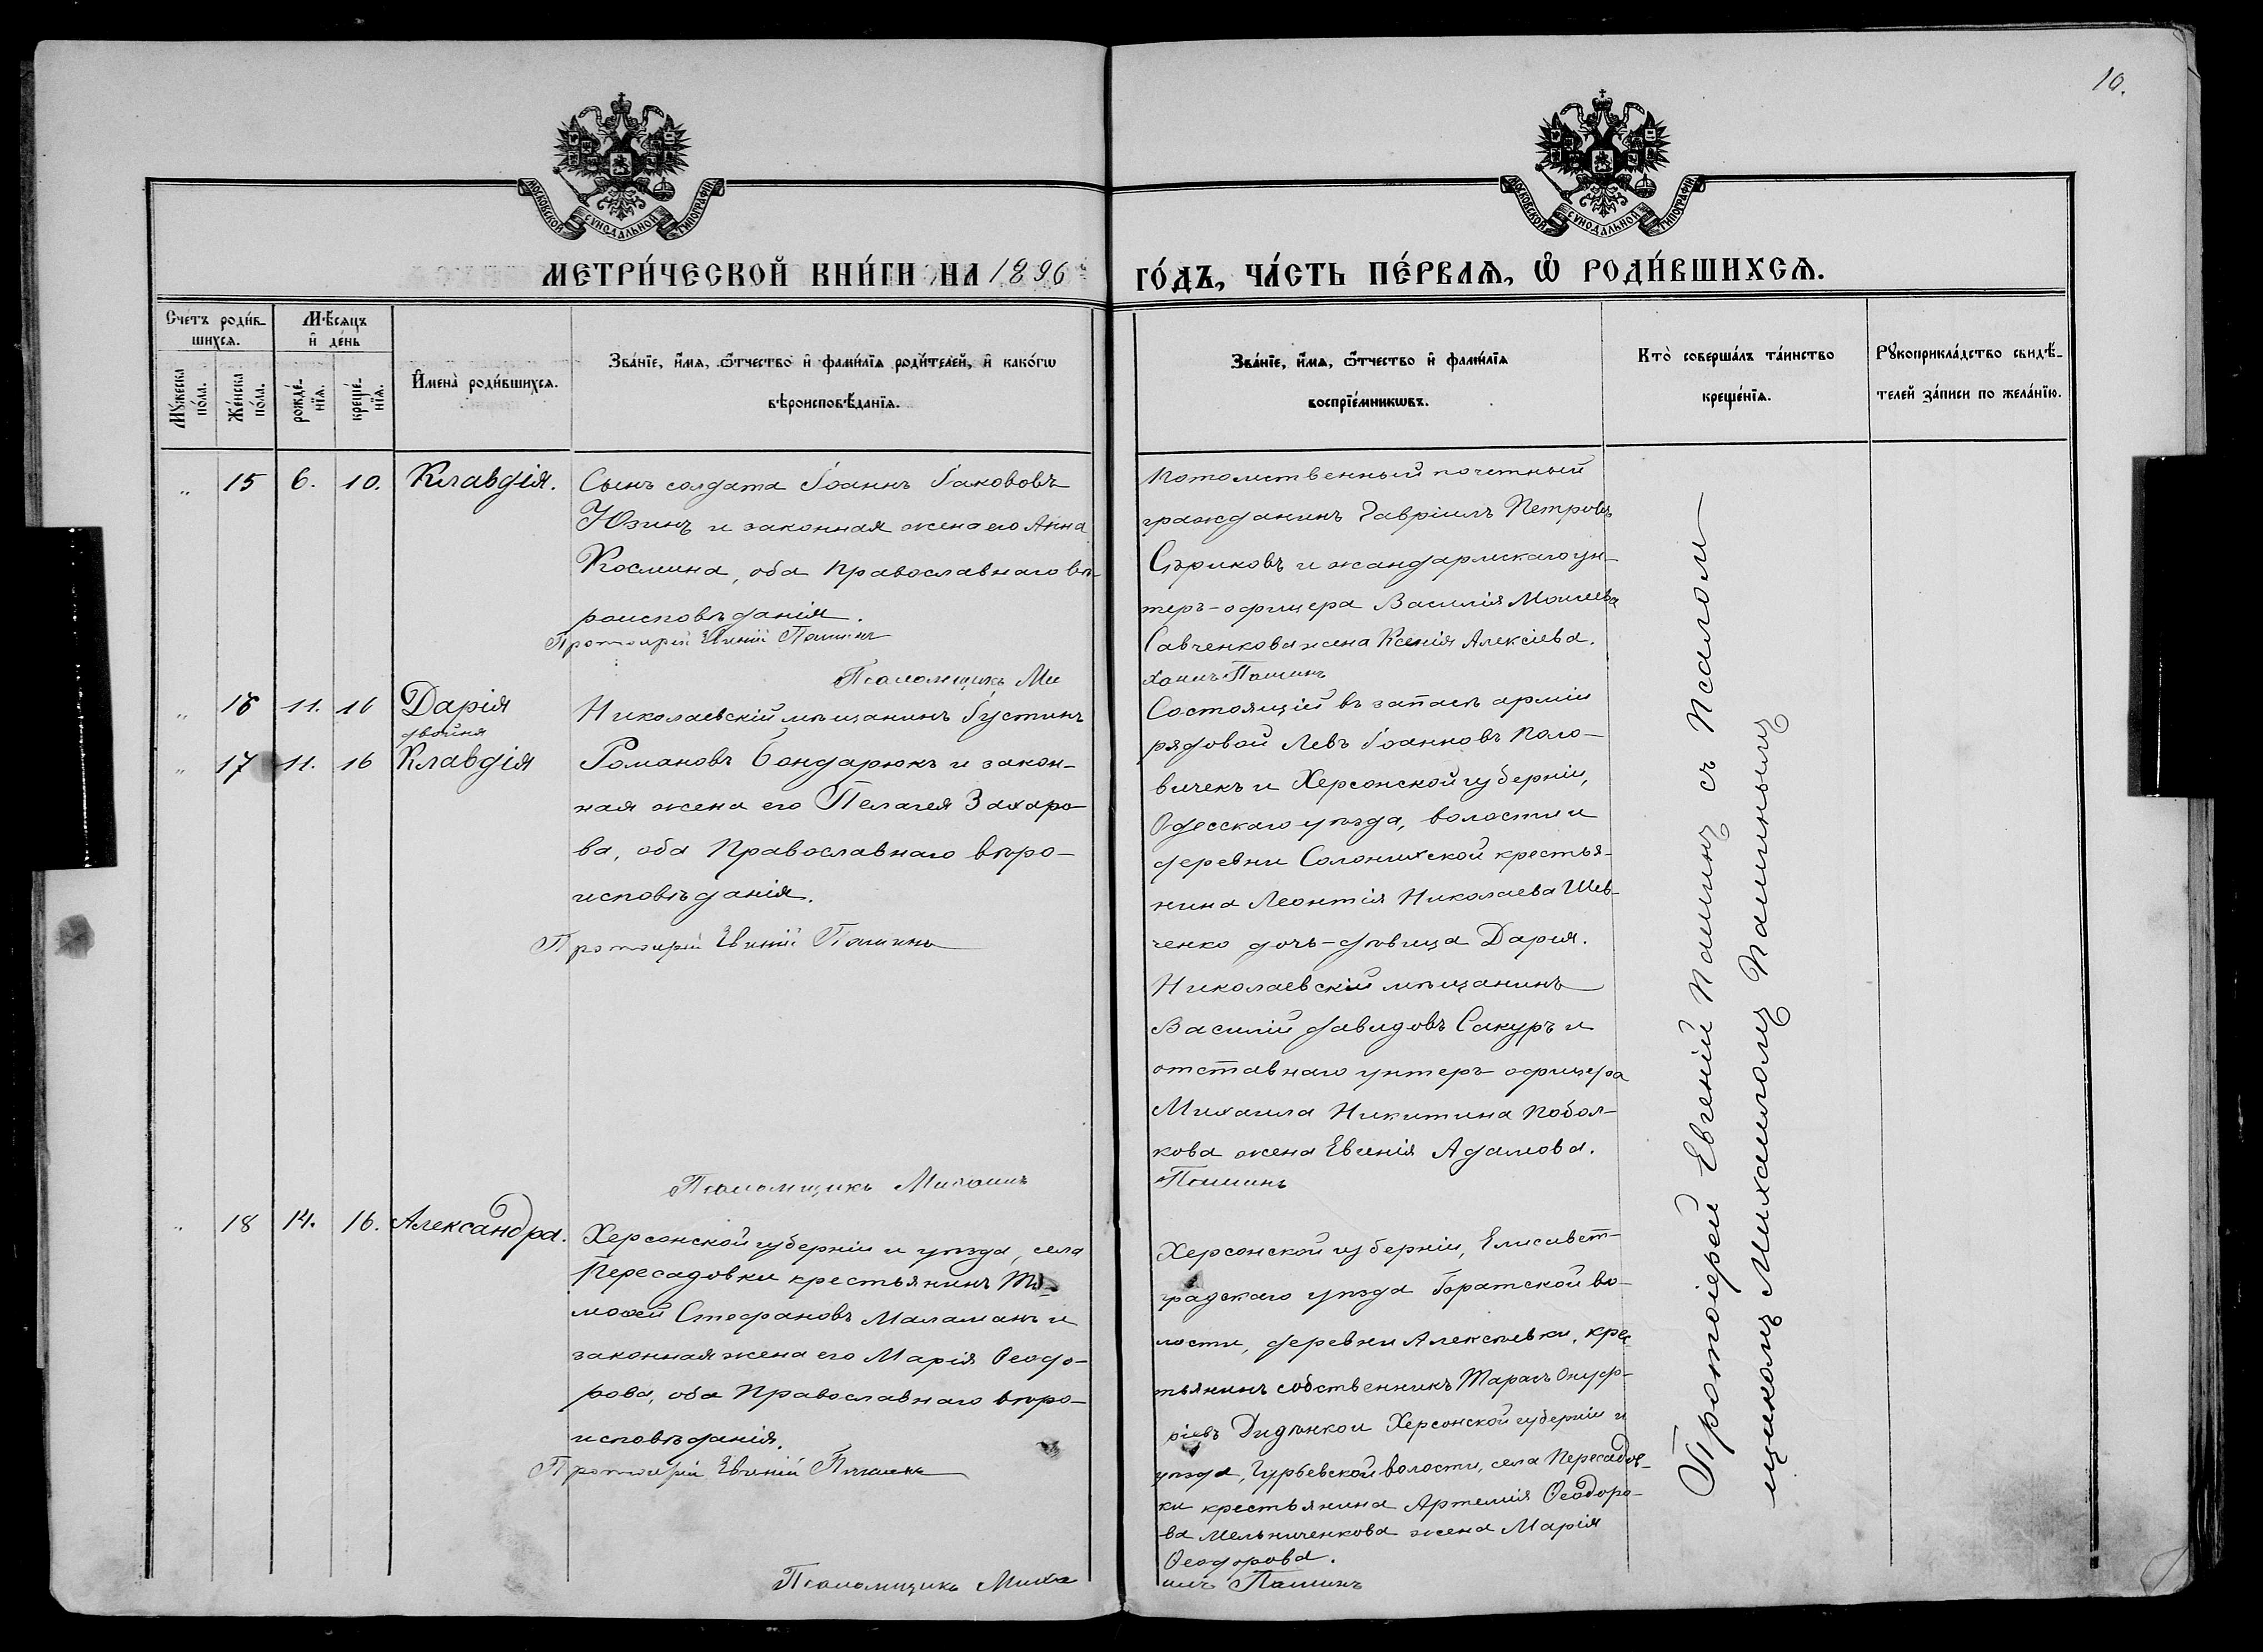 10.
МОСКОВСКОЙ СѴНОДАЛЬНОЙ ТИПОГРАФІИ
МОСКОВСКОЙ СѴНОДАЛЬНОЙ ТИПОГРАФІИ
МЕТРИ́ЧЕСКОЙ КНИ́ГИ НА 1896 ГО́ДЪ, ЧА́СТЬ ПЕ́РВАѦ, Ѡ РОДИ́ВШИХСѦ.
Сче́тъ роди́в-
шихся.
Мꙋ́жеска по́ла.
Же́нска по́ла.
Мѣ́сяцъ
и҆ де́нь
рожде́-нїѧ.
креще́-нїѧ.
И҆мена̀ роди́вшихся.
Зва́нїе, и҆́мѧ, ѻ҆́тчество и҆ фами́лїѧ роди́телей, и҆ како́гѡ
вѣроисповѣ́данїѧ.
Зва́нїе, и҆́мѧ, ѻ҆́тчество и҆ фами́лїѧ
воспрїе́мникѡвъ.
Кто̀ соверша́лъ та́инство
креще́нїѧ.
Рꙋкоприкла́дство свидѣ́-
телей за́писи по жела́нїю.
„ 15 6. 10. Клавдія.
Сынъ солдата Іоаннъ Іакововъ
Юзинъ и законная жена его Анна
Космина, оба Православнаго вѣ-
роисповѣданія.
Протоіерей Евгеній Пашинъ
Псаломщикъ Ми
Потомственный почетный
гражданинъ Гавріилъ Петровъ
Сѣриковъ и жандармскаго ун-
теръ-офицера Василія Моисеева
Савченкова жена Ксенія Алексіева.
хаилъ Пашинъ
„ 16 11. 16 Дарія
двойня
„ 17 11. 16 Клавдія
Николаевскій мѣщанинъ Іустинъ
Романовъ Бондарюкъ и закон-
ная жена его Пелагея Захаро-
ва, оба Православнаго вѣро-
исповѣданія.
Протоіерей Евгеній Пашинъ
Псаломщикъ Михаилъ
Состоящій въ запасѣ арміи
рядовой Левъ Іоанновъ Поло-
вичекъ и Херсонской губерніи,
Одесскаго уѣзда, волости и
деревни Солонихской крестья-
нина Леонтія Николаева Шев-
ченко дочь-дѣвица Дарія.
Николаевскій мѣщанинъ
Василій Давидовъ Сакуръ и
отставнаго унтеръ-офицера
Михаила Никитина Побол-
кова жена Евгенія Адамова.
Пашинъ
„ 18 14. 16. Александра.
Херсонской губерніи и уѣзда, села
Пересадовки крестьянинъ Ти-
моѳей Стефановъ Маламанъ и
законная жена его Марія Ѳеодо-
рова, оба Православнаго вѣро-
исповѣданія.
Протоіерей Евгеній Пашинъ
Псаломщикъ Миха
Херсонской губерніи, Елисавет-
градскаго уѣзда Братской во-
лости, деревни Алексѣевки, крес
тьянинъ собственникъ Тарасъ Онуф-
ріевъ Херсонской губерніи и
уѣзда, Гурьевской волости, села Пересадов-
ки крестьянина Артемія Ѳеодоро-
ва Мельниченкова жена Марія
Ѳеодорова.
илъ Пашинъ
Протоіерей Евгеній Пашинъ съ Псалом-
щикомъ Михаиломъ Пашинымъ